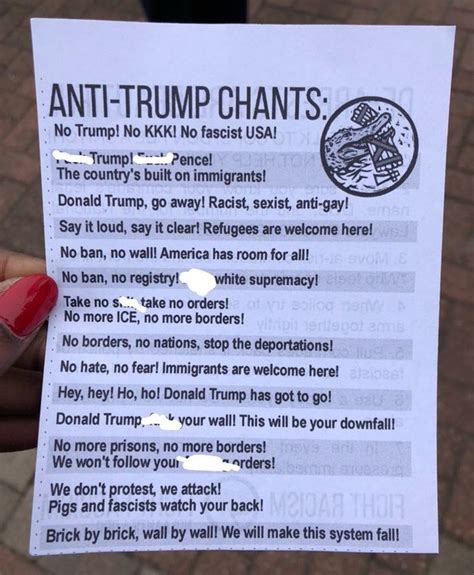 ANTI-TRUMP CHANTS:
No Trump! No KKK! No fascist USA!
Trump! Pence!
The country's built on immigrants!
Donald Trump, go away! Racist, sexist, anti-gay!
Say it loud, say it clear! Refugees are welcome here!
No ban, no wall! America has room for all!
No ban, no registry! white supremacy!
Take no take no orders!
No more ICE, no more borders!
No borders, no nations, stop the deportations!
No hate, no fear! Immigrants are welcome here!
Hey, hey! Ho, ho! Donald Trump has got to go!
Donald Trump, your wall! This will be your downfall!
No more prisons, no more borders!
We won't follow your orders!
We don't protest, we attack!
Pigs and fascists watch your back!
Brick by brick, wall by wall! We will make this system fall!